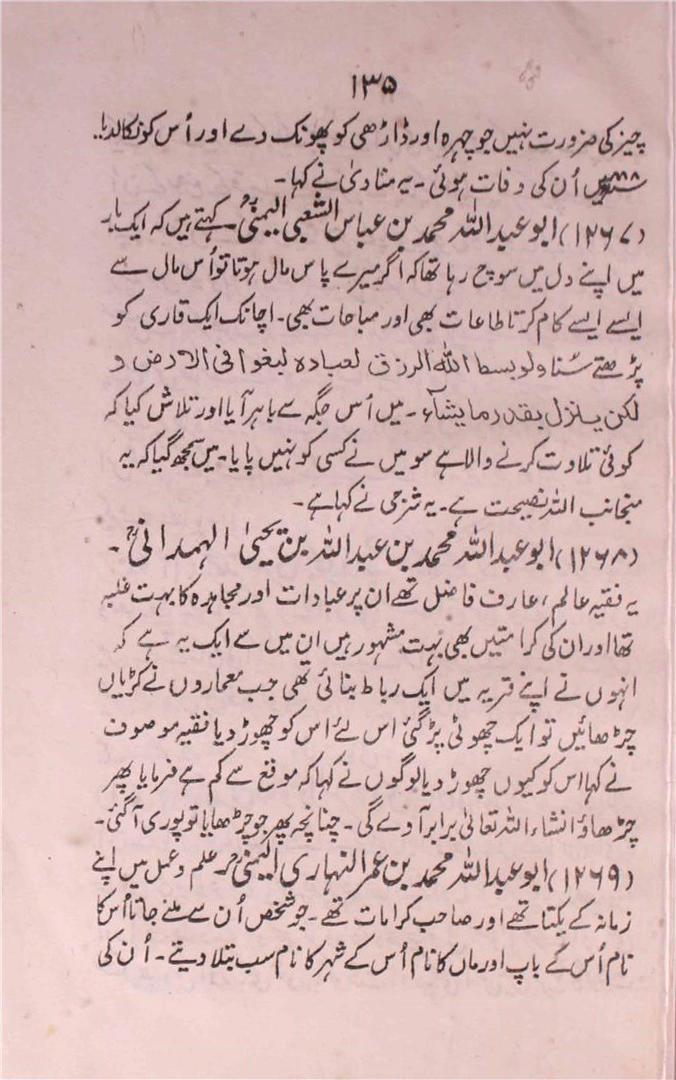 ۱۳۵
چیز کی ضرورت نہیں جو چہرہ اور ڈاڑھی کو پھونک دے اور اُس کو نکالدیا۔
میں اُن کی وفات ہوئی۔ یہ منادی نے کہا۔
(۱۲۶۷) ابو عبد اللہ محمد بن عباس الشعبی الیمنیؒ کہتے ہیں کہ ایک بار
میں اپنے دل میں سوچ رہا تھا کہ اگر میرے پاس مال ہوتا تو اُس مال سے
ایسے ایسے کام کرتا طاعات بھی اور مباحات بھی۔ اچانک ایک قاری کو
پڑھتے سُنا ولو بسط اللہ الرزق لعبادہ لبغوا فی الارض و
لکن ینزل بقدر ما یشآء۔ میں اُس جگہ سے باہر آیا اور تلاش کیا کہ
کوئی تلاوت کرنے والا ہے سو میں نے کسی کو نہیں پایا۔ میں سمجھ گیا کہ یہ
منجانب اللہ نصیحت ہے۔ یہ شرجی نے کہا ہے۔
(۱۲۶۸) ابو عبد اللہ محمد بن عبد اللہ بن یحییٰ الہمدانیؒ۔
یہ فقیہ عالم، عارف فاضل تھے ان پر عبادات اور مجاہدہ کا بہت غلبہ
تھا اور ان کی کرامتیں بھی بہت مشہور ہیں ان میں سے ایک یہ ہے کہ
انہوں نے اپنے قریہ میں ایک رباط بنائی تھی جب معماروں نے کڑیاں
چڑھائیں تو ایک چھوٹی پڑ گئی اس لئے اس کو چھوڑ دیا فقیہ موصوف
نے کہا اس کو کیوں چھوڑ دیا لوگوں نے کہا کہ موقع سے کم ہے فرمایا پھر
چڑھاؤ انشاء اللہ تعالیٰ برابر آ وے گی۔ چنانچہ پھر جو چڑھایا تو پوری آ گئی۔
(۱۲۶۹) ابو عبد اللہ محمد بن عمر النہاری الیمنیؒ علم و عمل میں اپنے
زمانہ کے یکتا تھے اور صاحب کرامات تھے۔ جو شخص اُن سے ملنے جاتا اُس کا
نام اُس کے باپ اور ماں کا نام اُس کے شہر کا نام سب بتلا دیتے۔ اُن کی